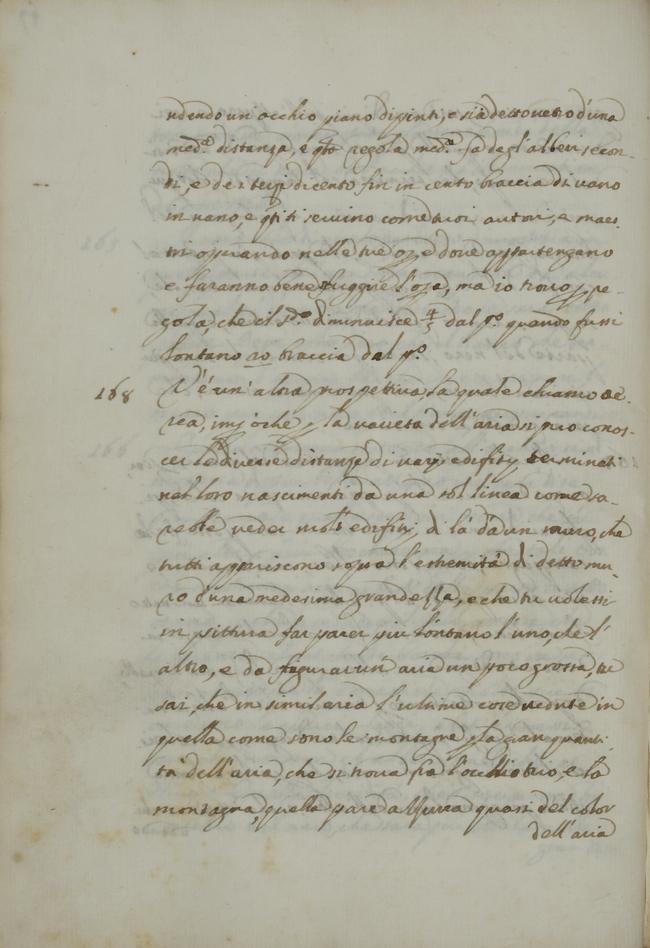 ndendo un occhio piano dipinti, e sia detto vetro d'una
med.ª distanza, e q.ta regola med.ª fa degl'alberi secon-
di, e de i terzi di cento fin in cento braccia di vano
in vano, e q.ti ti servino come tuoi autori, e maes-
tri operando nelle tue op.e dove appartengano
e faranno bene fuggire l'opa, ma io trovo p re-
gola, che il 2.º diminuisce 4/5 dal p.º quando fussi
lontano 20 braccia dal p.º
168 V'è un'altra prospettiva, la quale chiamo ae-
rea, imp.oche p la varietà dell'aria si può conos-
cer le diverse distanze di varij edifitij terminati
nel loro nascimenti da una sol linea come sa-
rebbe veder molti edifitij di là da un muro, che
tutti appariscono sopra l'estremità di detto mu-
ro d'una medesima grandezza, e che tu volessi
in pittura far parer più lontano l'uno, che l'
altro, e da figurarvi un'aria un poco grossa, tu
sai, che in simil aria l'ultime cose vedute in
quella come sono le montagne p la gran quanti-
tà dell'aria, che si trova fra l'occhio tuo, e la
montagna, quella pare azzurra quasi del color
dell'aria